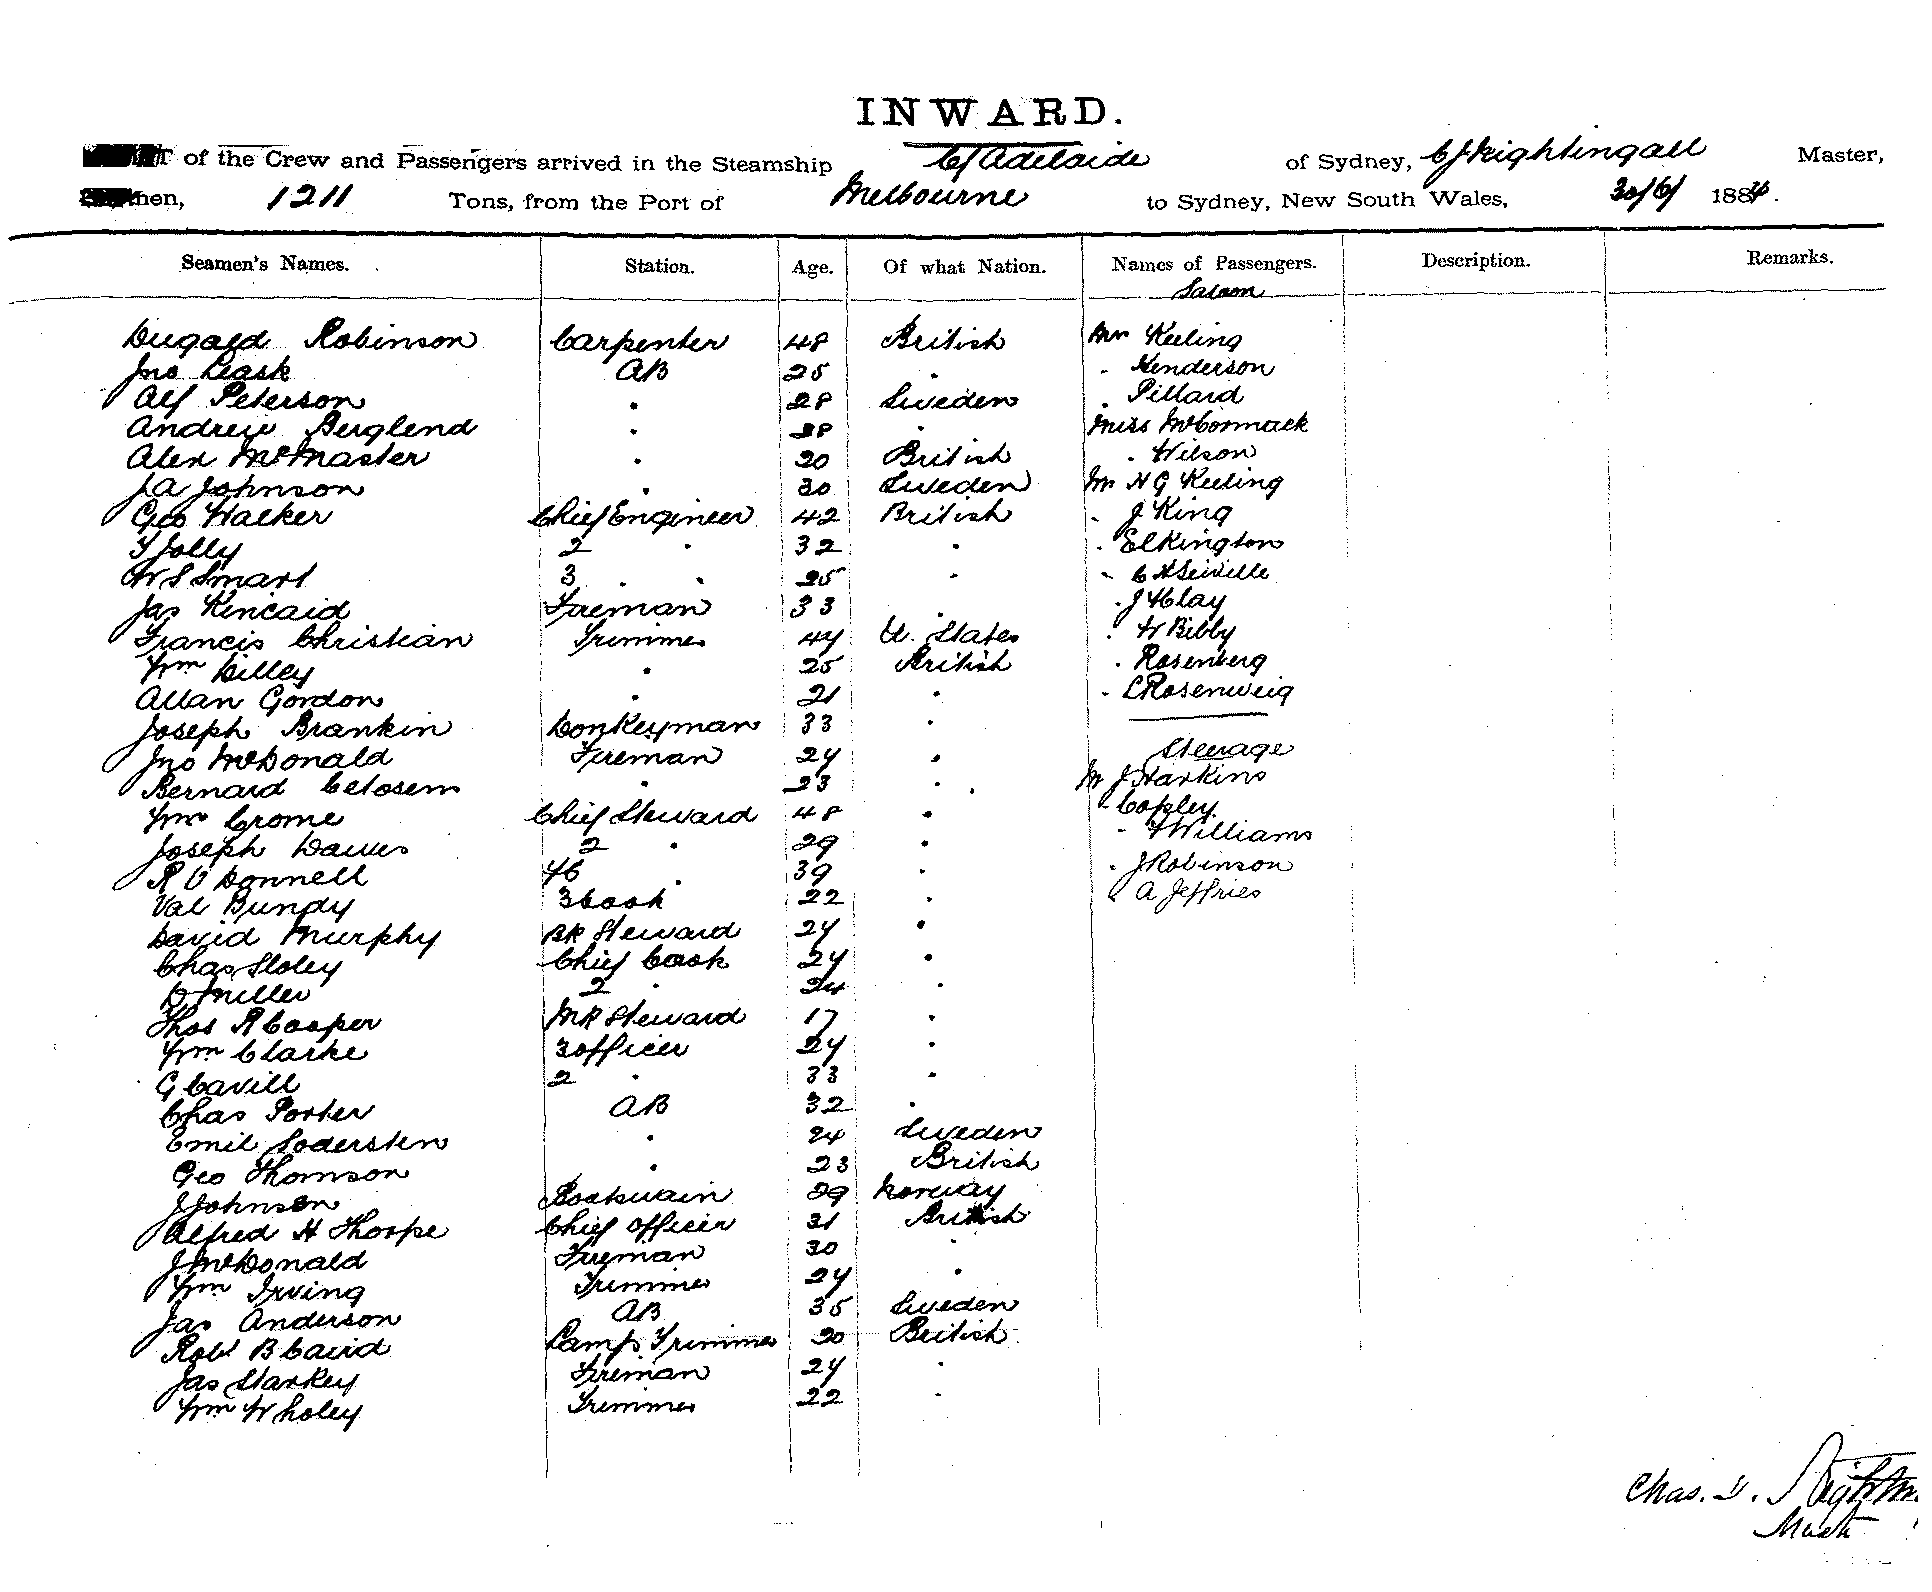 INWARD.
of the Crew and Passengers arrived in the Steamship C/Adelaide of Sydney, C J Nightingall Master,
1211 Tons, from the Port of Melbourne to Sydney, New South Wales, 30/6/ 1884.
Seamen's Names. Station. Age. Of what Nation. Names of Passengers. Description. Remarks.
Saloon
Dugald Robinson Carpenter 48 British Mrs Keeling
Jno Leask AB 25 " " Henderson
Alf Peterson " 28 Sweden " Pillard
Andrew Berglend " 28 " Miss McCormack
Alex McMaster " 20 British " Wilson
J A Johnson " 30 Sweden Mr H G Keeling
Geo Walker Chief Engineer 42 British " J King
T Jolly 2 " 32 " " Elkington
W S Smart 3 " " 25 " " C H
Jas Kincaid Fireman 33 " " J Hay
Francis Christian Trimmer 44 U. States " W Bibby
Wm Dilley " 25 British " Rosenberg
Allan Gordon " 21 " " Rosenweig
Joseph Brankin Donkeyman 33 "
Steerage
Jno McDonald Fireman 24 " Mr J Harkins
Bernard " 23 " " Copley
Wm Crome Chief Steward 48 " " Williams
Joseph Dawes 2 " 29 " " J Robinson
R O Donnell " 39 " " A Jeffries
Val Bundy 3 Cook 22 "
David Murphy BR Steward 24 "
Chas Sloley Chief Cook 24 "
D Miller 2 " 24 "
Thos R Cooper Steward 17 "
Wm Clarke 3 officer 24 "
G Cavill 2 " 33 "
Chas Porter AB 32 "
Emil Sodersten " 24 Sweden
Geo Thomson " 23 British
J Johnson Boatswain 29 Norway
Alfred H Thorpe Chief officer 31 British
J McDonald Fireman 30 "
Wm Irving Trimmer 24 "
Jas Anderson AB 35 Sweden
Robt B Caird Lamp Trimmer 20 British
Jas Starkey Fireman 24 "
Wm Wholey Trimmer 22 "
Chas.